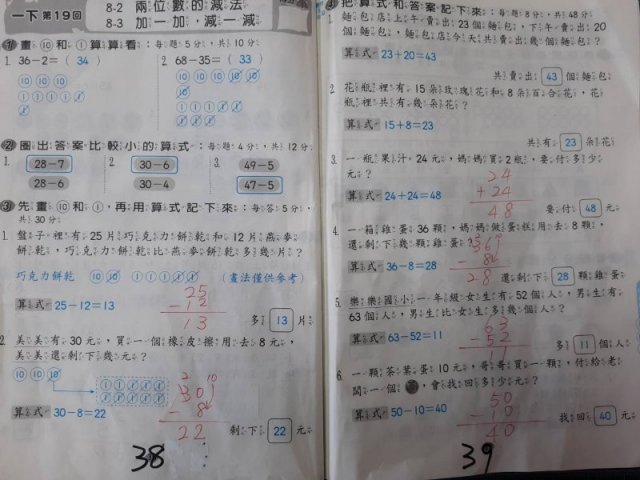 一下 第19回
8-2 兩位數的減法
8-3 加一加,減一減
1 畫⑩和①算算看:每題5分,共10分
1. 36-2=( 34 )
2. 68-35=( 33 )
2 圈出答案比較小的算式:每題4分,共12分
1. 28-7
28-6
2. 30-6
30-4
3. 49-5
47-5
3 先畫⑩和①,再用算式記下來:每答5分,
共30分
1. 盤子裡有25片巧克力餅乾和12片燕麥
餅乾,巧克力餅乾比燕麥餅乾多幾片?
巧克力餅乾 (畫法僅供參考)
算式 25-12=13
25
-12
13
多 13 片
2. 美美有30元,買一個橡皮擦用去8元,
美美還剩下幾元?
算式 30-8=22
2 10
30
- 8
22
剩下 22 元
38
把算式和答案記下來:每題8分,共48分
1. 麵包店上午賣出23個麵包,下午賣出20
個麵包,麵包店今天共賣出幾個麵包?
算式 23+20=43
共賣出 43 個麵包
2. 花瓶裡有15朵玫瑰花和8朵百合花,花
瓶裡共有幾朵花?
算式 15+8=23
共有 23 朵花
3. 一瓶果汁24元,媽媽買2瓶,要付多少
元?
算式 24+24=48
24
+ 24
48
要付 48 元
4. 一箱雞蛋36顆,媽媽做蛋糕用去8顆,
還剩下幾顆雞蛋?
算式 36-8=28
36
- 8
28
還剩下 28 顆雞蛋
5. 樂樂國小一年級女生有52個人,男生有
63個人,男生比女生多幾個人?
算式 63-52=11
63
- 52
11
多 11 個人
6. 一顆茶葉蛋10元,哥哥買一顆,付給老
闆一個,會找回多少元?
算式 50-10=40
50
- 10
40
找回 40 元
39